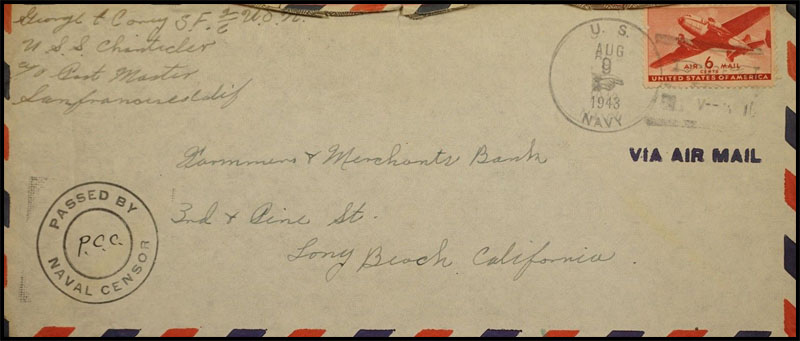 George t Corey S.F. 2/c U.S.N.
U.S.S. Chanticler
c/o Post Master
Sanfrancisco Calif
U. S.
AUG
9
1943
NAVY
AIR 6 MAIL
CENTS
UNITED STATES OF AMERICA
VIA AIR MAIL
Farmmers & Merchants Bank
3rd & Pine St.
Long Beach California.
PASSED BY
P.C.C.
NAVAL CENSOR